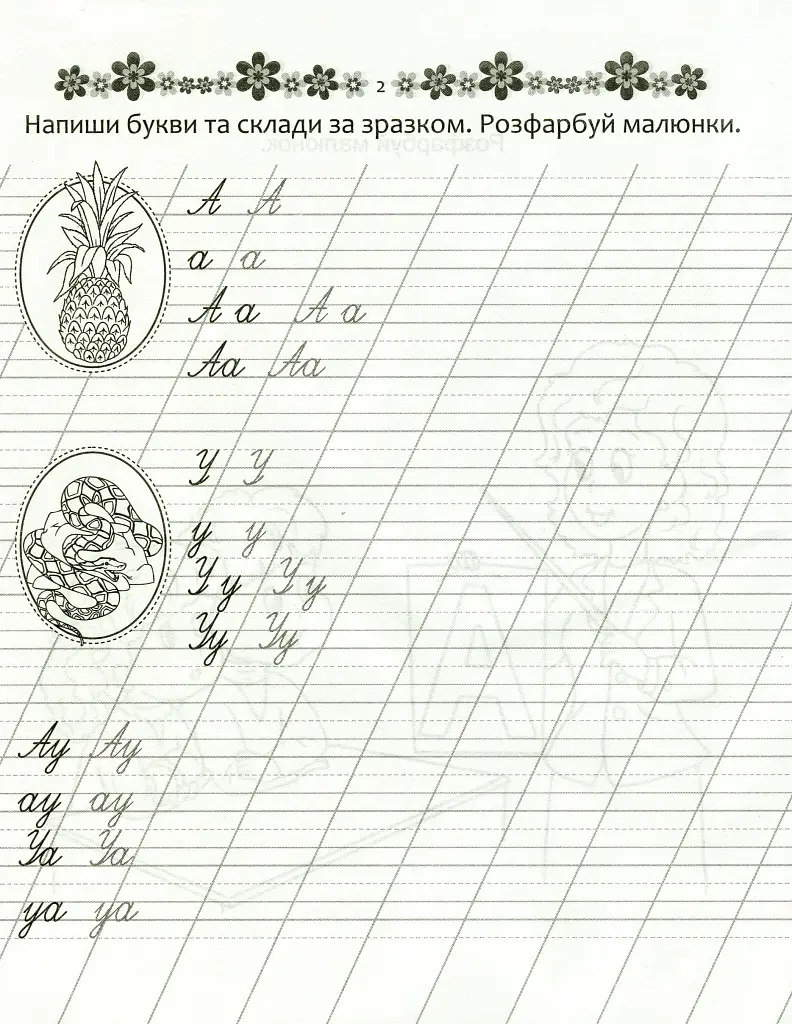 2
Напиши букви та склади за зразком. Розфарбуй малюнки.
А А
а а
А а А а
Аа Аа
У У
у у
У у У у
Уу Уу
Ау Ау
ау ау
Уа Уа
уа уа